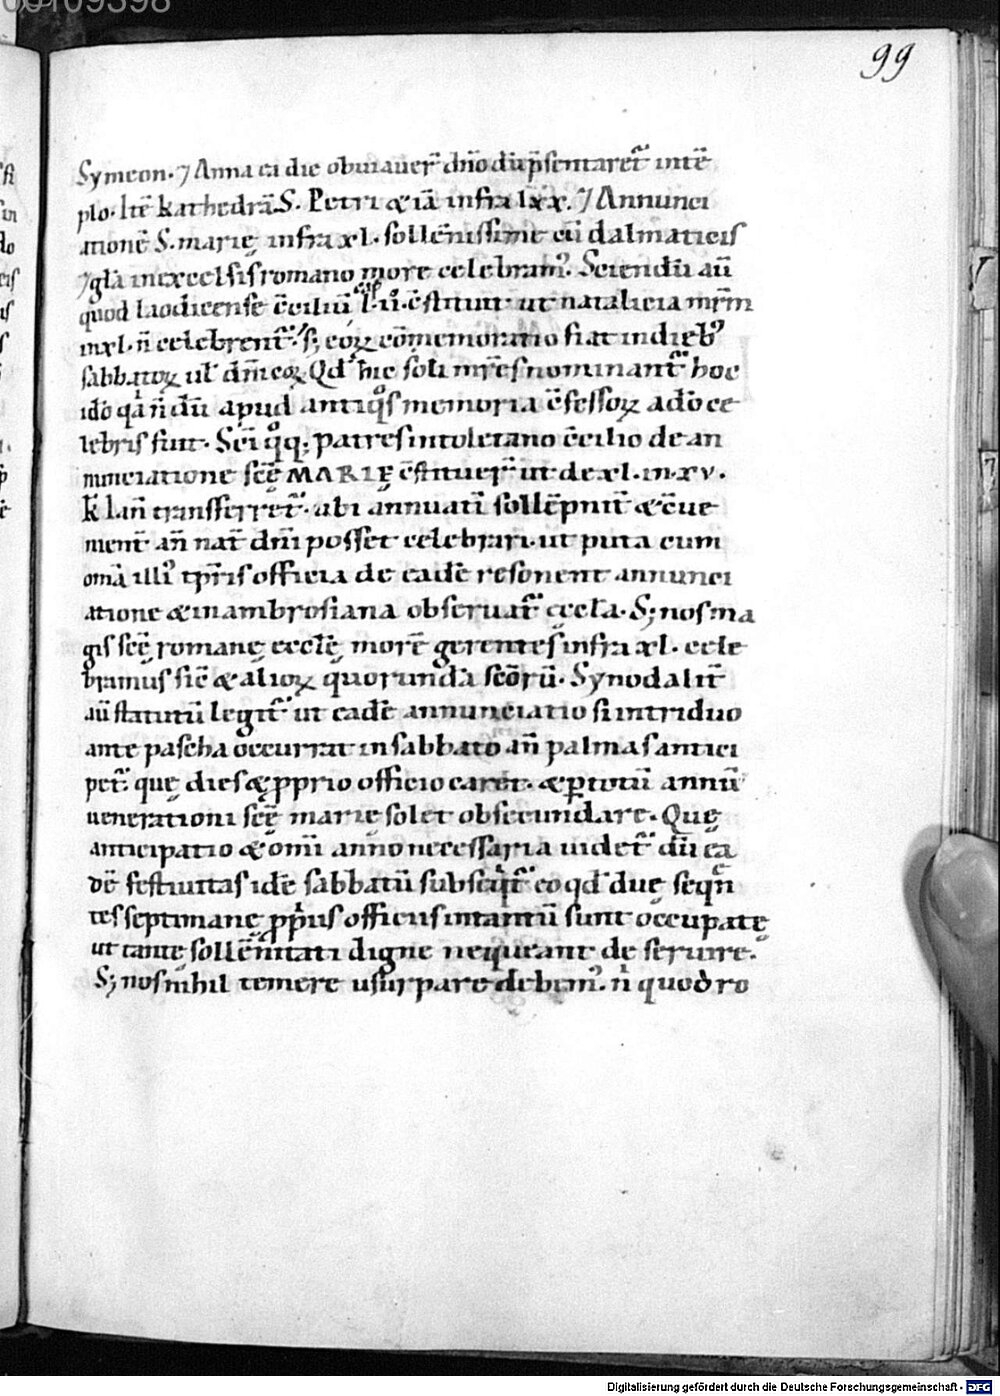 00109398
99
Symeon. ⁊ Anna ea die obuiauer̄ dn̄o dū p̄sentaret᷑ intē
plo. Itē kathedrā S. Petri & iā infra lxx. ⁊ Annunci
ationē S. marie̜ infra xl. sollēnissime cū dalmaticis
⁊ gl̄a in excelsis romano more celebram᷒. Sciendū aū
quod laodicense c̄ciliū cap̄ l. ii. c̄stituit ut natalicia mr̄m
in xl. n̄ celebrent᷑. s; eoꝝ cōmemoratio fiat in dieb᷒
sabbatoꝝ ul̄ dn̄icoꝝ. Qd̄ hic soli mr̄es nominant᷑ hoc
idō q̄a n̄dū apud antiq̊s memoria c̄fessoꝝ adō ce
lebris fuit. Sc̄i q̊q; patres in toletano c̄cilio de an
nunciatione sc̄e̜ MARIE̜ c̄stituer̄ ut de xl. in xv.
k̄l ian̄ transferret᷑. ubi annuatī sollēpnit̄ & c̄ue
nient̄ an̄ nat̄ dn̄i posset celebrari. ut puta cum
om̄a illi᷒ tp̄ris officia de eadē resonent annunci
atione & in ambrosiana obseruat᷑ e̜ccl̄a. S; nos ma
gis sc̄e̜ romane̜ eccl̄e̜ morē gerentes infra xl. cele
bramus sic̄ & alioꝝ quorundā sc̄orū. Synodalit̄
aū statutū legit᷑ ut eadē annunciatio si in triduo
ante pascha occurrat in sabbato an̄ palmas antici
pet᷑. que̜ dies & ꝓprio officio caret. & ꝑ totū annū
uenerationi sc̄e̜ marie̜ solet obsecundare. Que̜
anticipatio & om̄i anno necessaria uidet᷑ dū ea
dē festiuitas idē sabbatū subseq̄t᷑ eo qd̄ due̜ seqn̄
tes septimane̜ ꝓp̄iis officiis in tantū sunt occupate̜
ut tante̜ sollēnitati digne nequeant de seruire.
S; nos nihil temere usurpare debem᷒. n̄ quod ro
Digitalisierung gefördert durch die Deutsche Forschungsgemeinschaft - DFG